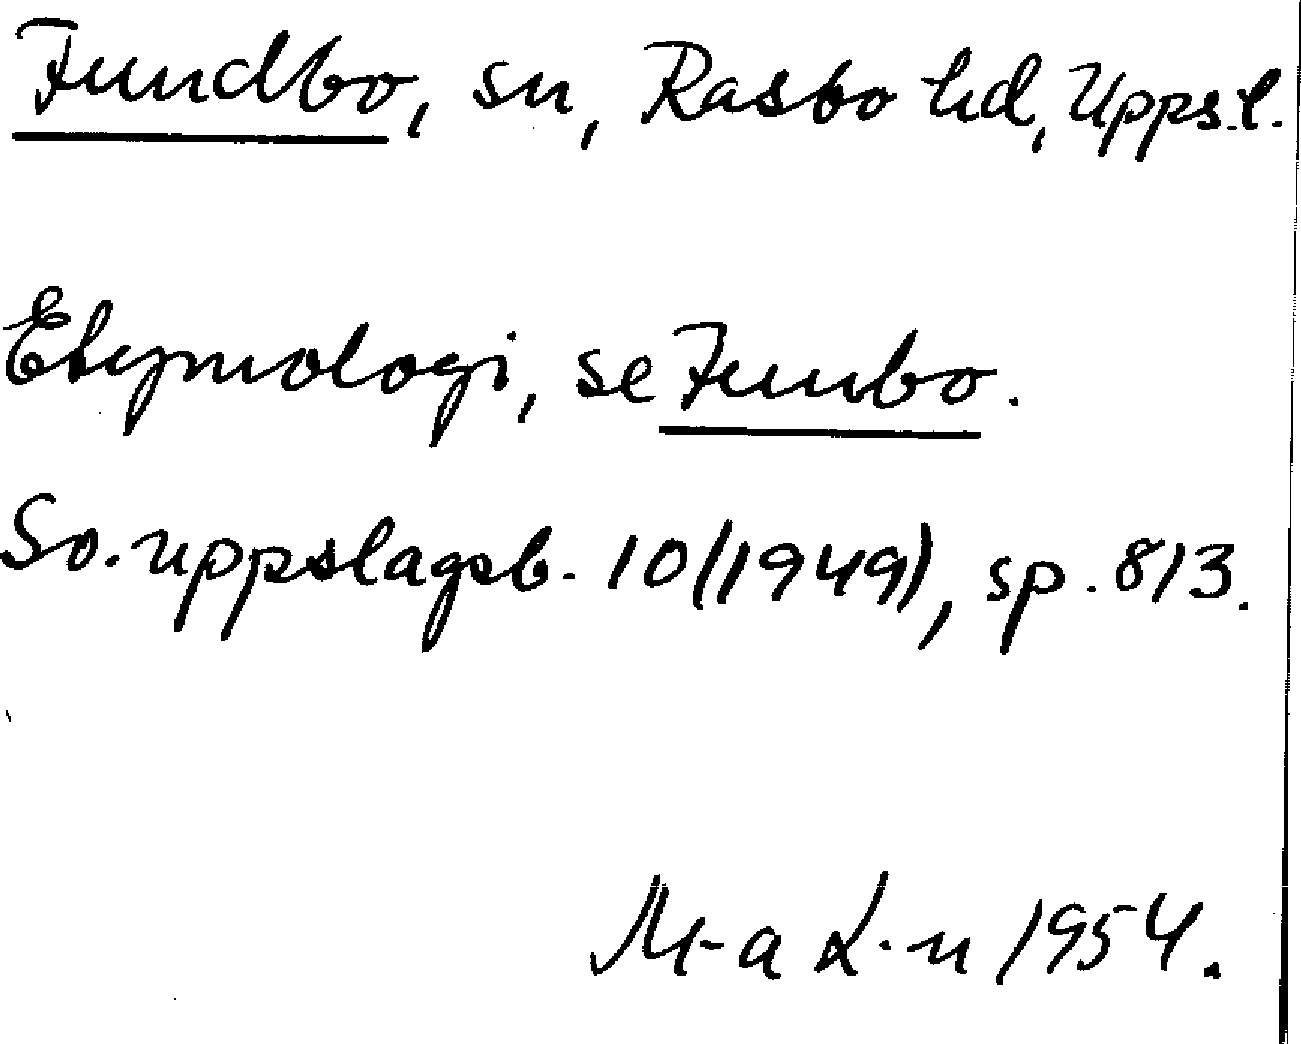 Fundbo, sn, Rasbo hd, Upps.l.
Etymologi, se Funbo.
Sv. uppslagsb. 10 (1949), sp. 813.
M-a L-n 1954.